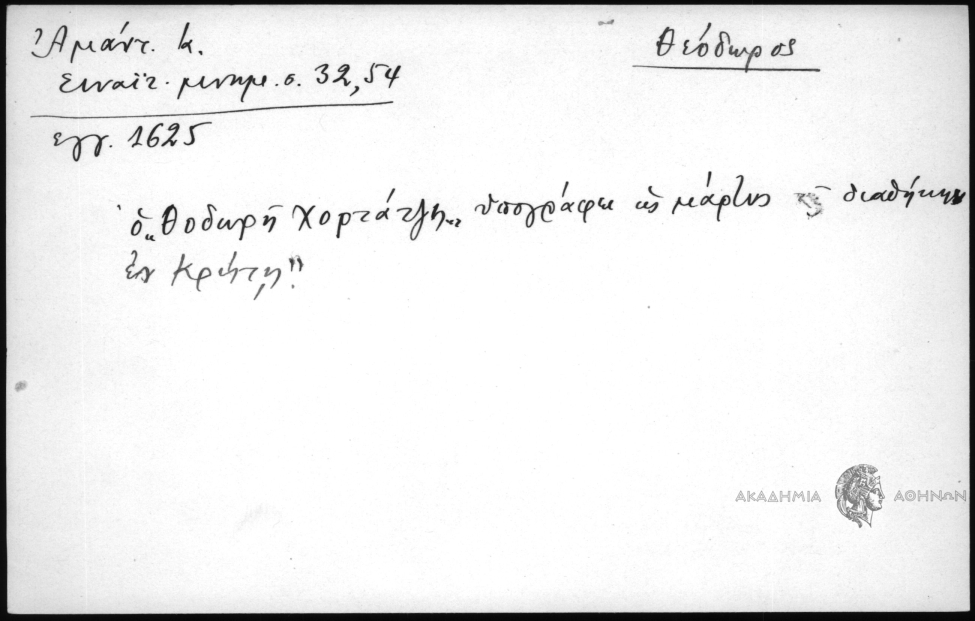 Ἀμάντ. Κ.
Θεόδωρος
Σιναϊτ. μνημ. σ. 32,54
εγγ. 1625
ὁ „Θοδωρῆ Χορτάτζη„ ὑπογράφει ὡς μάρτυς διαθήκην
ἐν Κρήτῃ"
ΑΚΑΔΗΜΙΑ ΑΘΗΝΩΝ